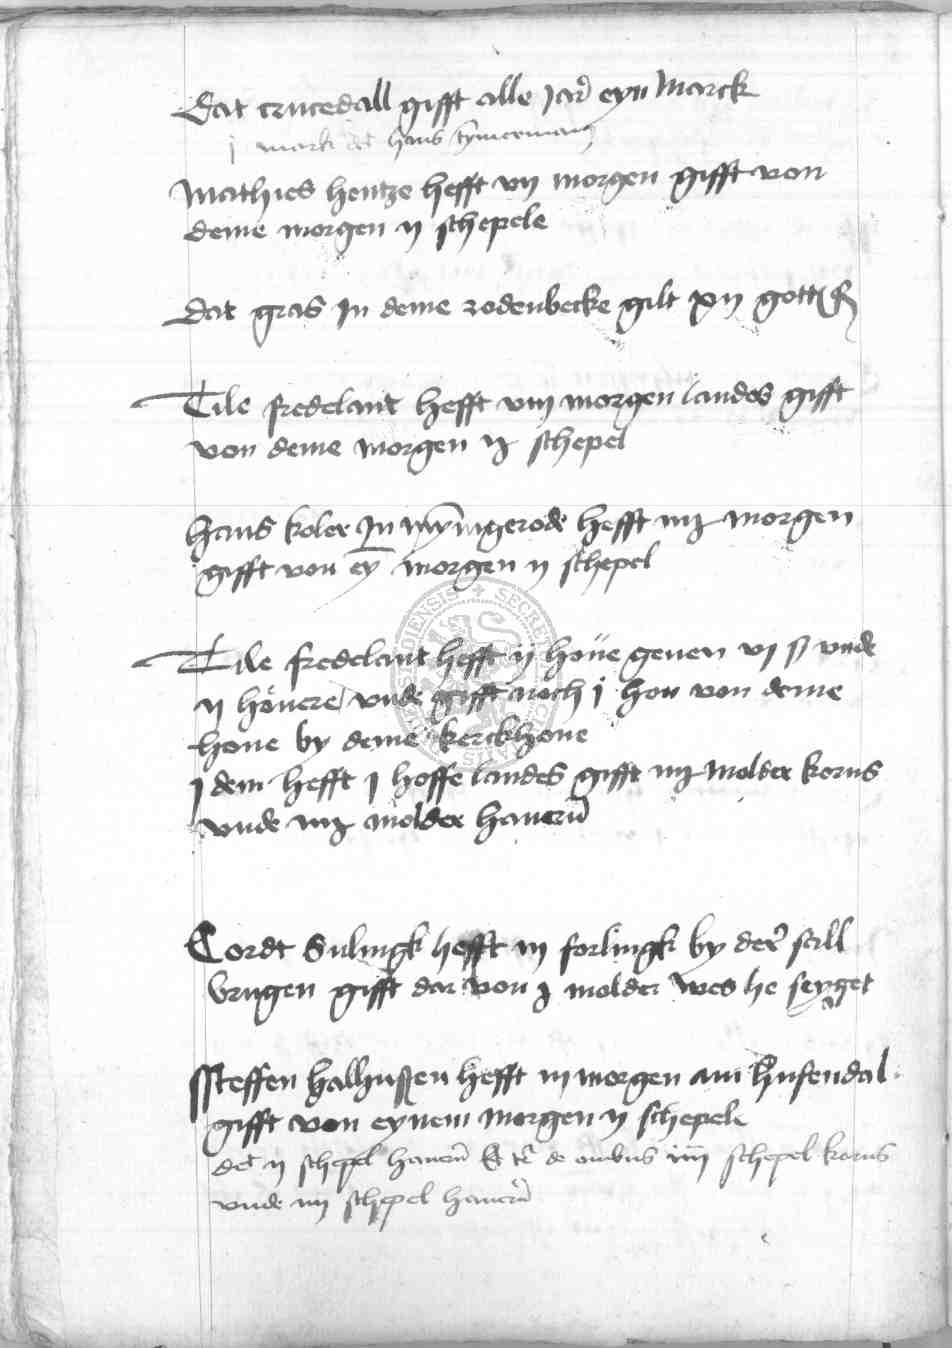 Dat crucedall gifft alle Jar eyn Marck
j mark det hans tymerman
Mathies hentze hefft vij morgen gifft von
deme morgen ij schepele
Dat gras Jn deme rodenbecke gilt xij gott
Tile fredelant hefft viij morgen landes gifft
von deme morgen ij schepel
hans koler Jn wyngerode hefft iiij morgen
gifft von ey morgen ij schepel
Tile fredelant hefft ij houe geuen vj ß vnde
ij honere vnde gifft noch j hon von deme
houe by deme kerckhoue
J dem hefft j hoffe landes gifft iiij molder korns
vnde iiij molder hauern
Cordt Sulingk hefft iij forlingk by der sill
brugen gifft dar von j molder wes he seyget
Steffen halhussen hefft iij morgen am husendal
gifft von eynem morgen ij schepele
det ij schepel hauern de omnibus iiij schepel korns
vnde iiij schepel hauern
SECRET